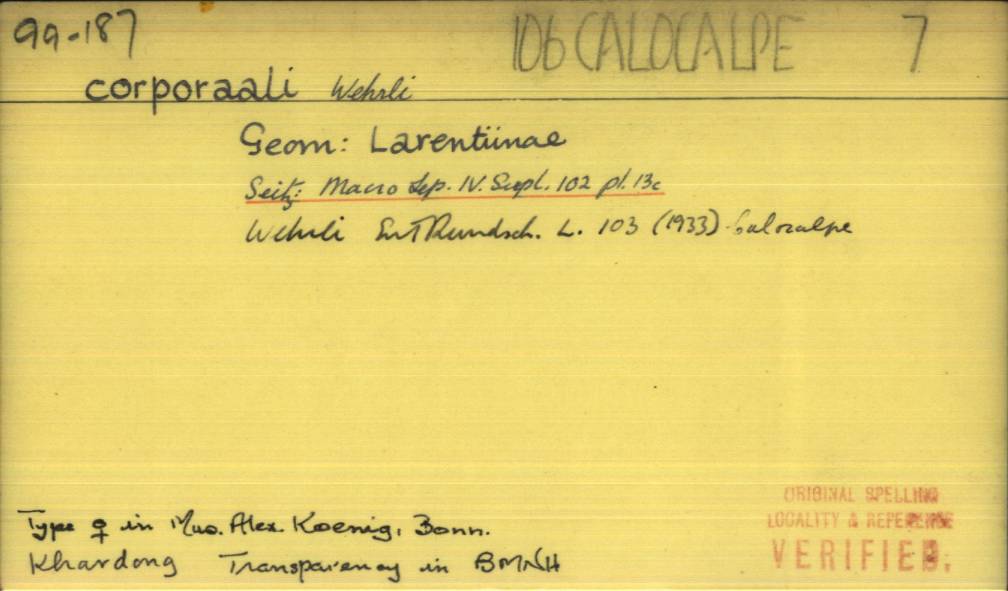 99-187
106 CALOCALPE 7
corporaali Wehrli
Geom: Larentiinae
Seitz: Macro Lep. IV. Supl. 102 pl. 13c
Wehrli Ent Rundsch. L. 103 (1933) Calocalpe
Type ♀ in Mus. Alex. Koenig, Bonn.
Khardong Transparency in BMNH
ORIGINAL SPELLING
LOCALITY & REFERENCE
VERIFIED.